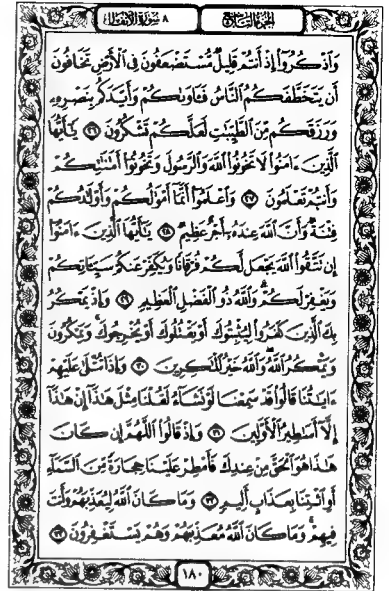 الجزء التاسع ٨ سورة الأنفال
وَاذْكُرُوا إِذْ أَنتُمْ قَلِيلٌ مُّسْتَضْعَفُونَ فِي الْأَرْضِ تَخَافُونَ
أَن يَتَخَطَّفَكُمُ النَّاسُ فَآوَىٰكُمْ وَأَيَّدَكُم بِنَصْرِهِ
وَرَزَقَكُم مِّنَ الطَّيِّبَٰتِ لَعَلَّكُمْ تَشْكُرُونَ ٢٦ يَٰأَيُّهَا
الَّذِينَ ءَامَنُوا لَا تَخُونُوا اللَّهَ وَالرَّسُولَ وَتَخُونُوا أَمَٰنَٰتِكُمْ
وَأَنتُمْ تَعْلَمُونَ ٢٧ وَاعْلَمُوا أَنَّمَا أَمْوَٰلُكُمْ وَأَوْلَٰدُكُمْ
فِتْنَةٌ وَأَنَّ اللَّهَ عِندَهُ أَجْرٌ عَظِيمٌ ٢٨ يَٰأَيُّهَا الَّذِينَ ءَامَنُوا
إِن تَتَّقُوا اللَّهَ يَجْعَل لَّكُمْ فُرْقَانًا وَيُكَفِّرْ عَنكُمْ سَيِّـَٔاتِكُمْ
وَيَغْفِرْ لَكُمْ وَاللَّهُ ذُو الْفَضْلِ الْعَظِيمِ ٢٩ وَإِذْ يَمْكُرُ
بِكَ الَّذِينَ كَفَرُوا لِيُثْبِتُوكَ أَوْ يَقْتُلُوكَ أَوْ يُخْرِجُوكَ وَيَمْكُرُونَ
وَيَمْكُرُ اللَّهُ وَاللَّهُ خَيْرُ الْمَٰكِرِينَ ٣٠ وَإِذَا تُتْلَىٰ عَلَيْهِمْ
ءَايَٰتُنَا قَالُوا قَدْ سَمِعْنَا لَوْ نَشَاءُ لَقُلْنَا مِثْلَ هَٰذَا إِنْ هَٰذَا
إِلَّا أَسَٰطِيرُ الْأَوَّلِينَ ٣١ وَإِذْ قَالُوا اللَّهُمَّ إِن كَانَ
هَٰذَا هُوَ الْحَقَّ مِنْ عِندِكَ فَأَمْطِرْ عَلَيْنَا حِجَارَةً مِّنَ السَّمَاءِ
أَوِ ائْتِنَا بِعَذَابٍ أَلِيمٍ ٣٢ وَمَا كَانَ اللَّهُ لِيُعَذِّبَهُمْ وَأَنتَ
فِيهِمْ وَمَا كَانَ اللَّهُ مُعَذِّبَهُمْ وَهُمْ يَسْتَغْفِرُونَ ٣٣
١٨٠